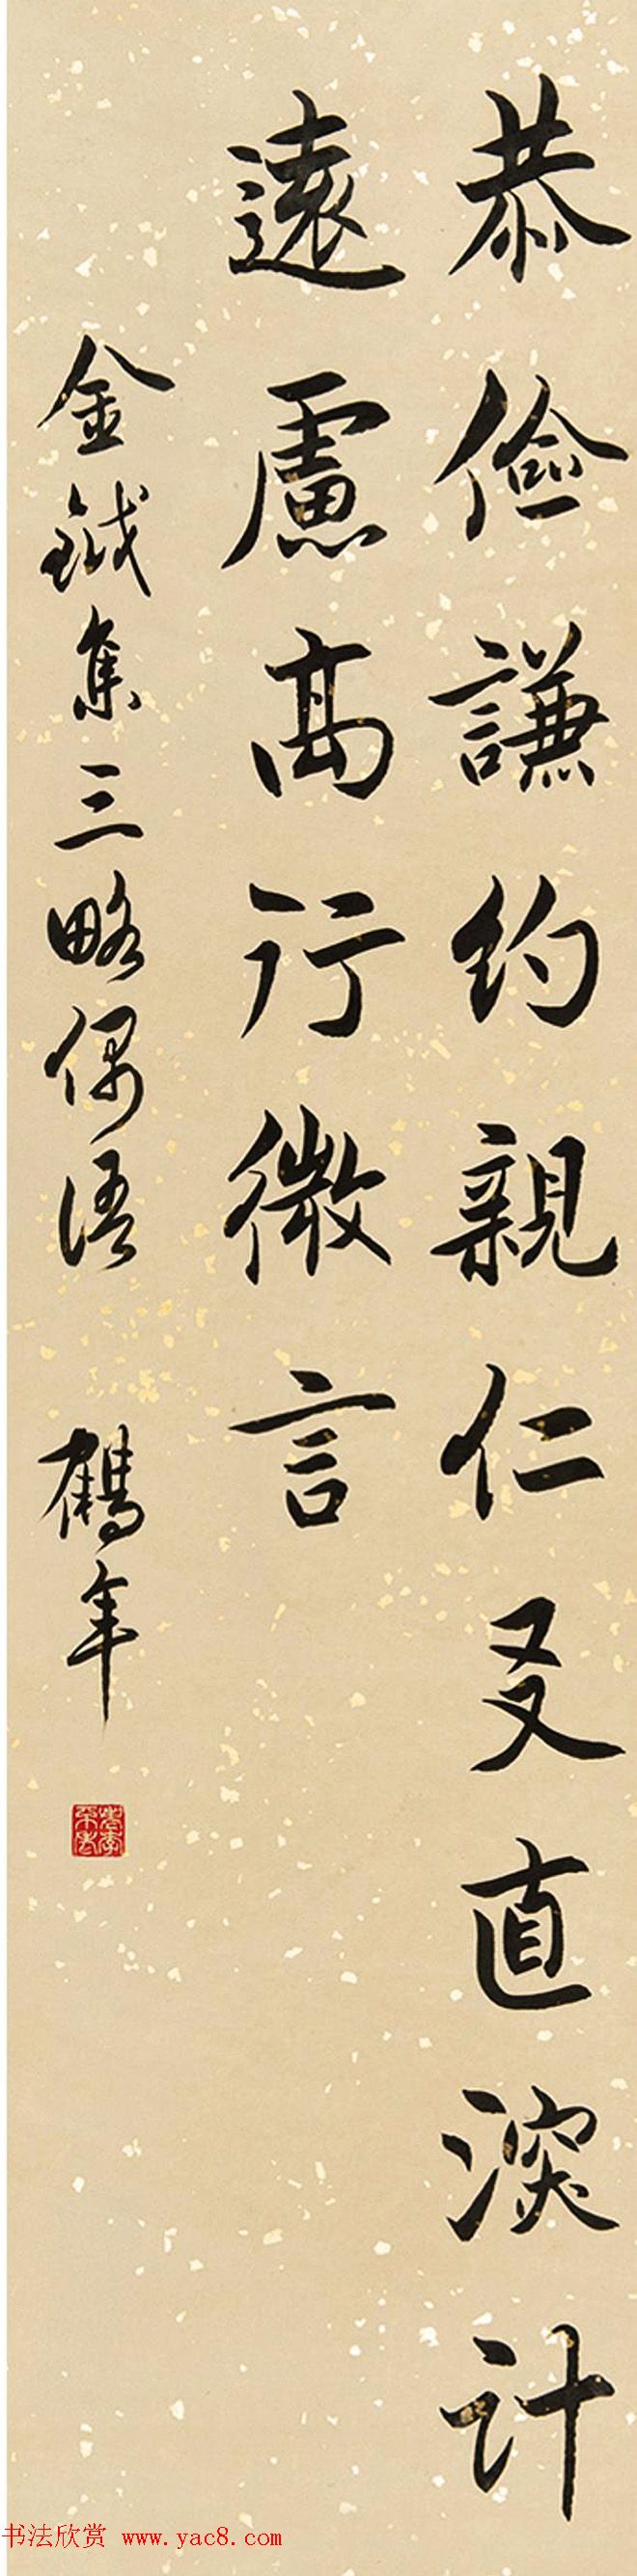 恭儉謙約親仁友直深計
遠慮高行微言
金鉞集三略偶語 鶴年
书法欣赏 www.yac8.com